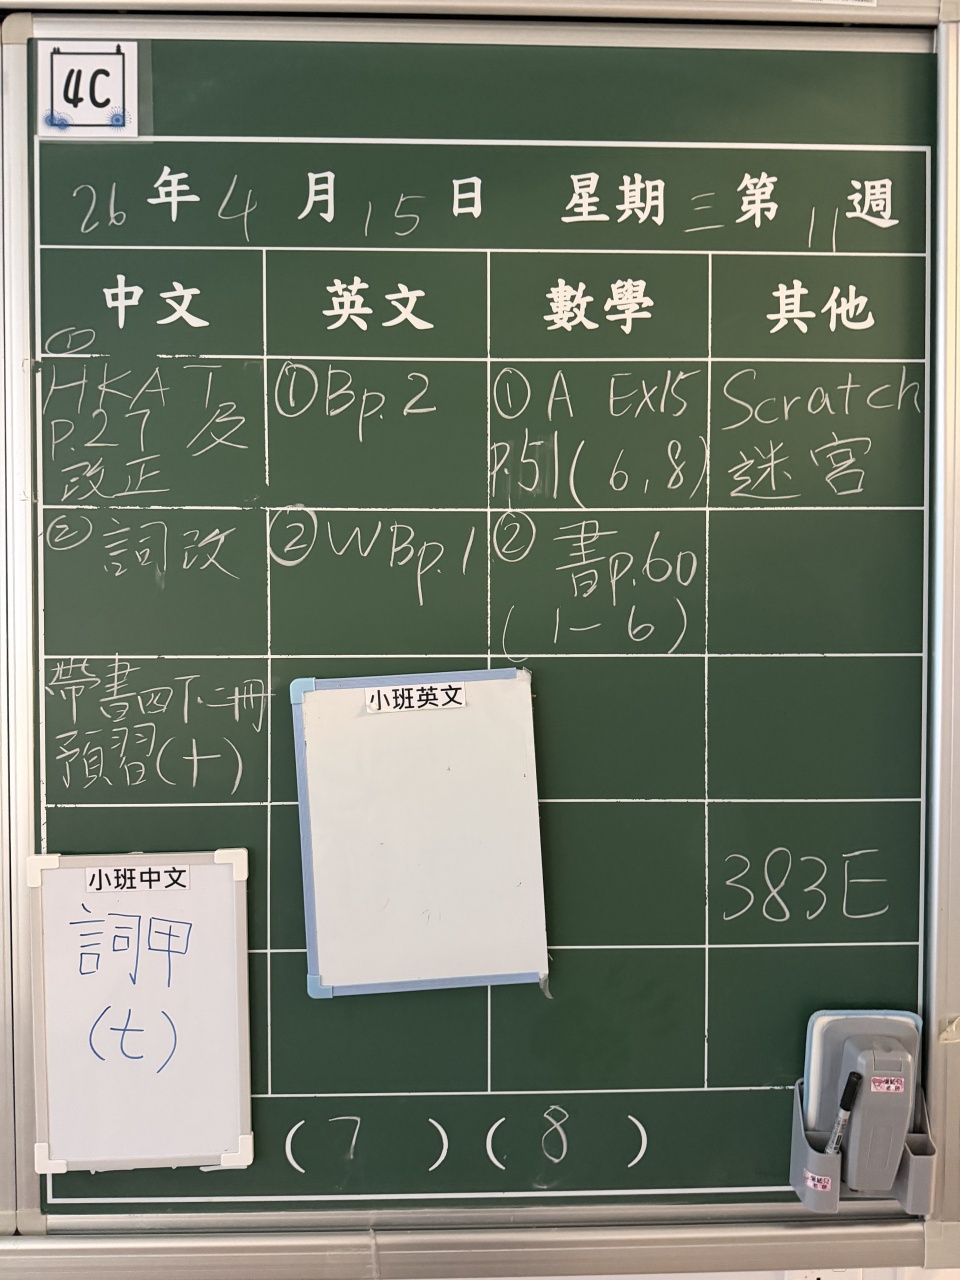 4C
26年4月15日 星期三第11週
中文 英文 數學 其他
①
HKAT
p.27 及
改正
①Bp.2
①A Ex15
p.51(6,8)
Scratch
迷宮
② 詞改
②WBp.1
② 書p.60
(1-6)
帶書四下二冊
預習(十)
小班英文
383E
小班中文
詞甲
(七)
(7) (8)